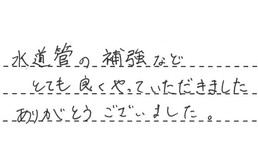 水道管の補強など
とても良くやっていただきました
ありがとうございました。